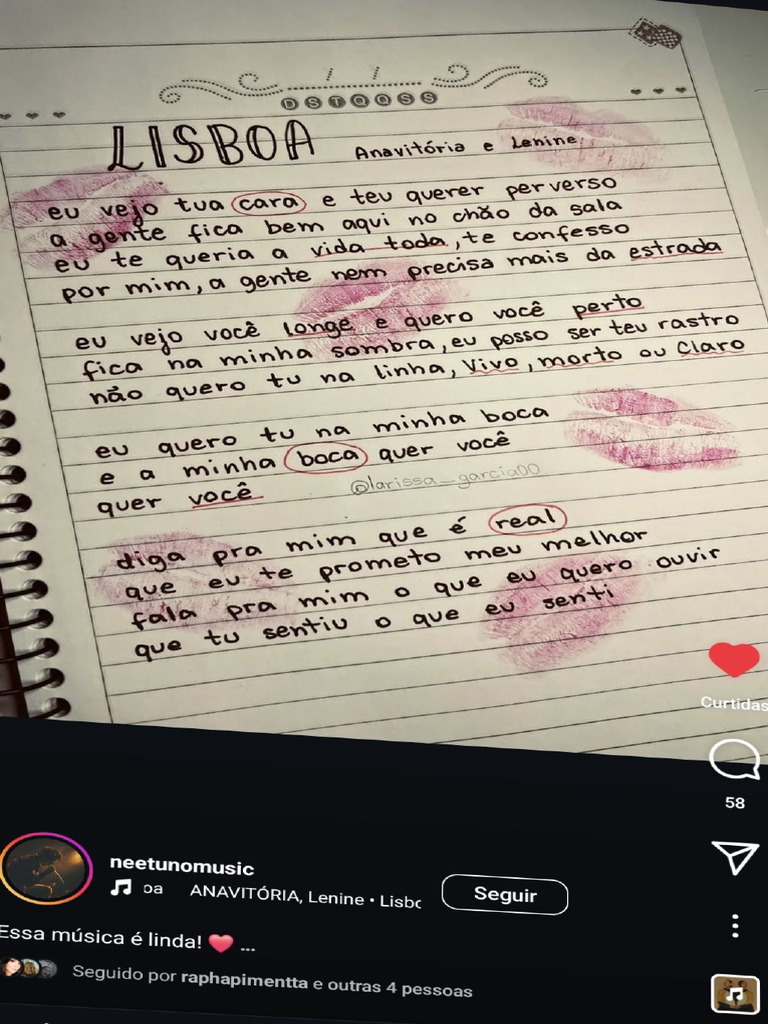 / /
D S T Q Q S S
LISBOA Anavitória e Lenine
eu vejo tua cara e teu querer perverso
a gente fica bem aqui no chão da sala
eu te queria a vida toda, te confesso
por mim, a gente nem precisa mais da estrada
eu vejo você longe e quero você perto
fica na minha sombra, eu posso ser teu rastro
não quero tu na linha, Vivo, morto ou Claro
eu quero tu na minha boca
e a minha boca quer você
quer você
@larissa_garcia00
diga pra mim que é real
que eu te prometo meu melhor
fala pra mim o que eu quero ouvir
que tu sentiu o que eu senti
Curtidas
58
neetunomusic
oa ANAVITÓRIA, Lenine • Lisbo
Seguir
Essa música é linda! ❤️ ...
Seguido por raphapimentta e outras 4 pessoas